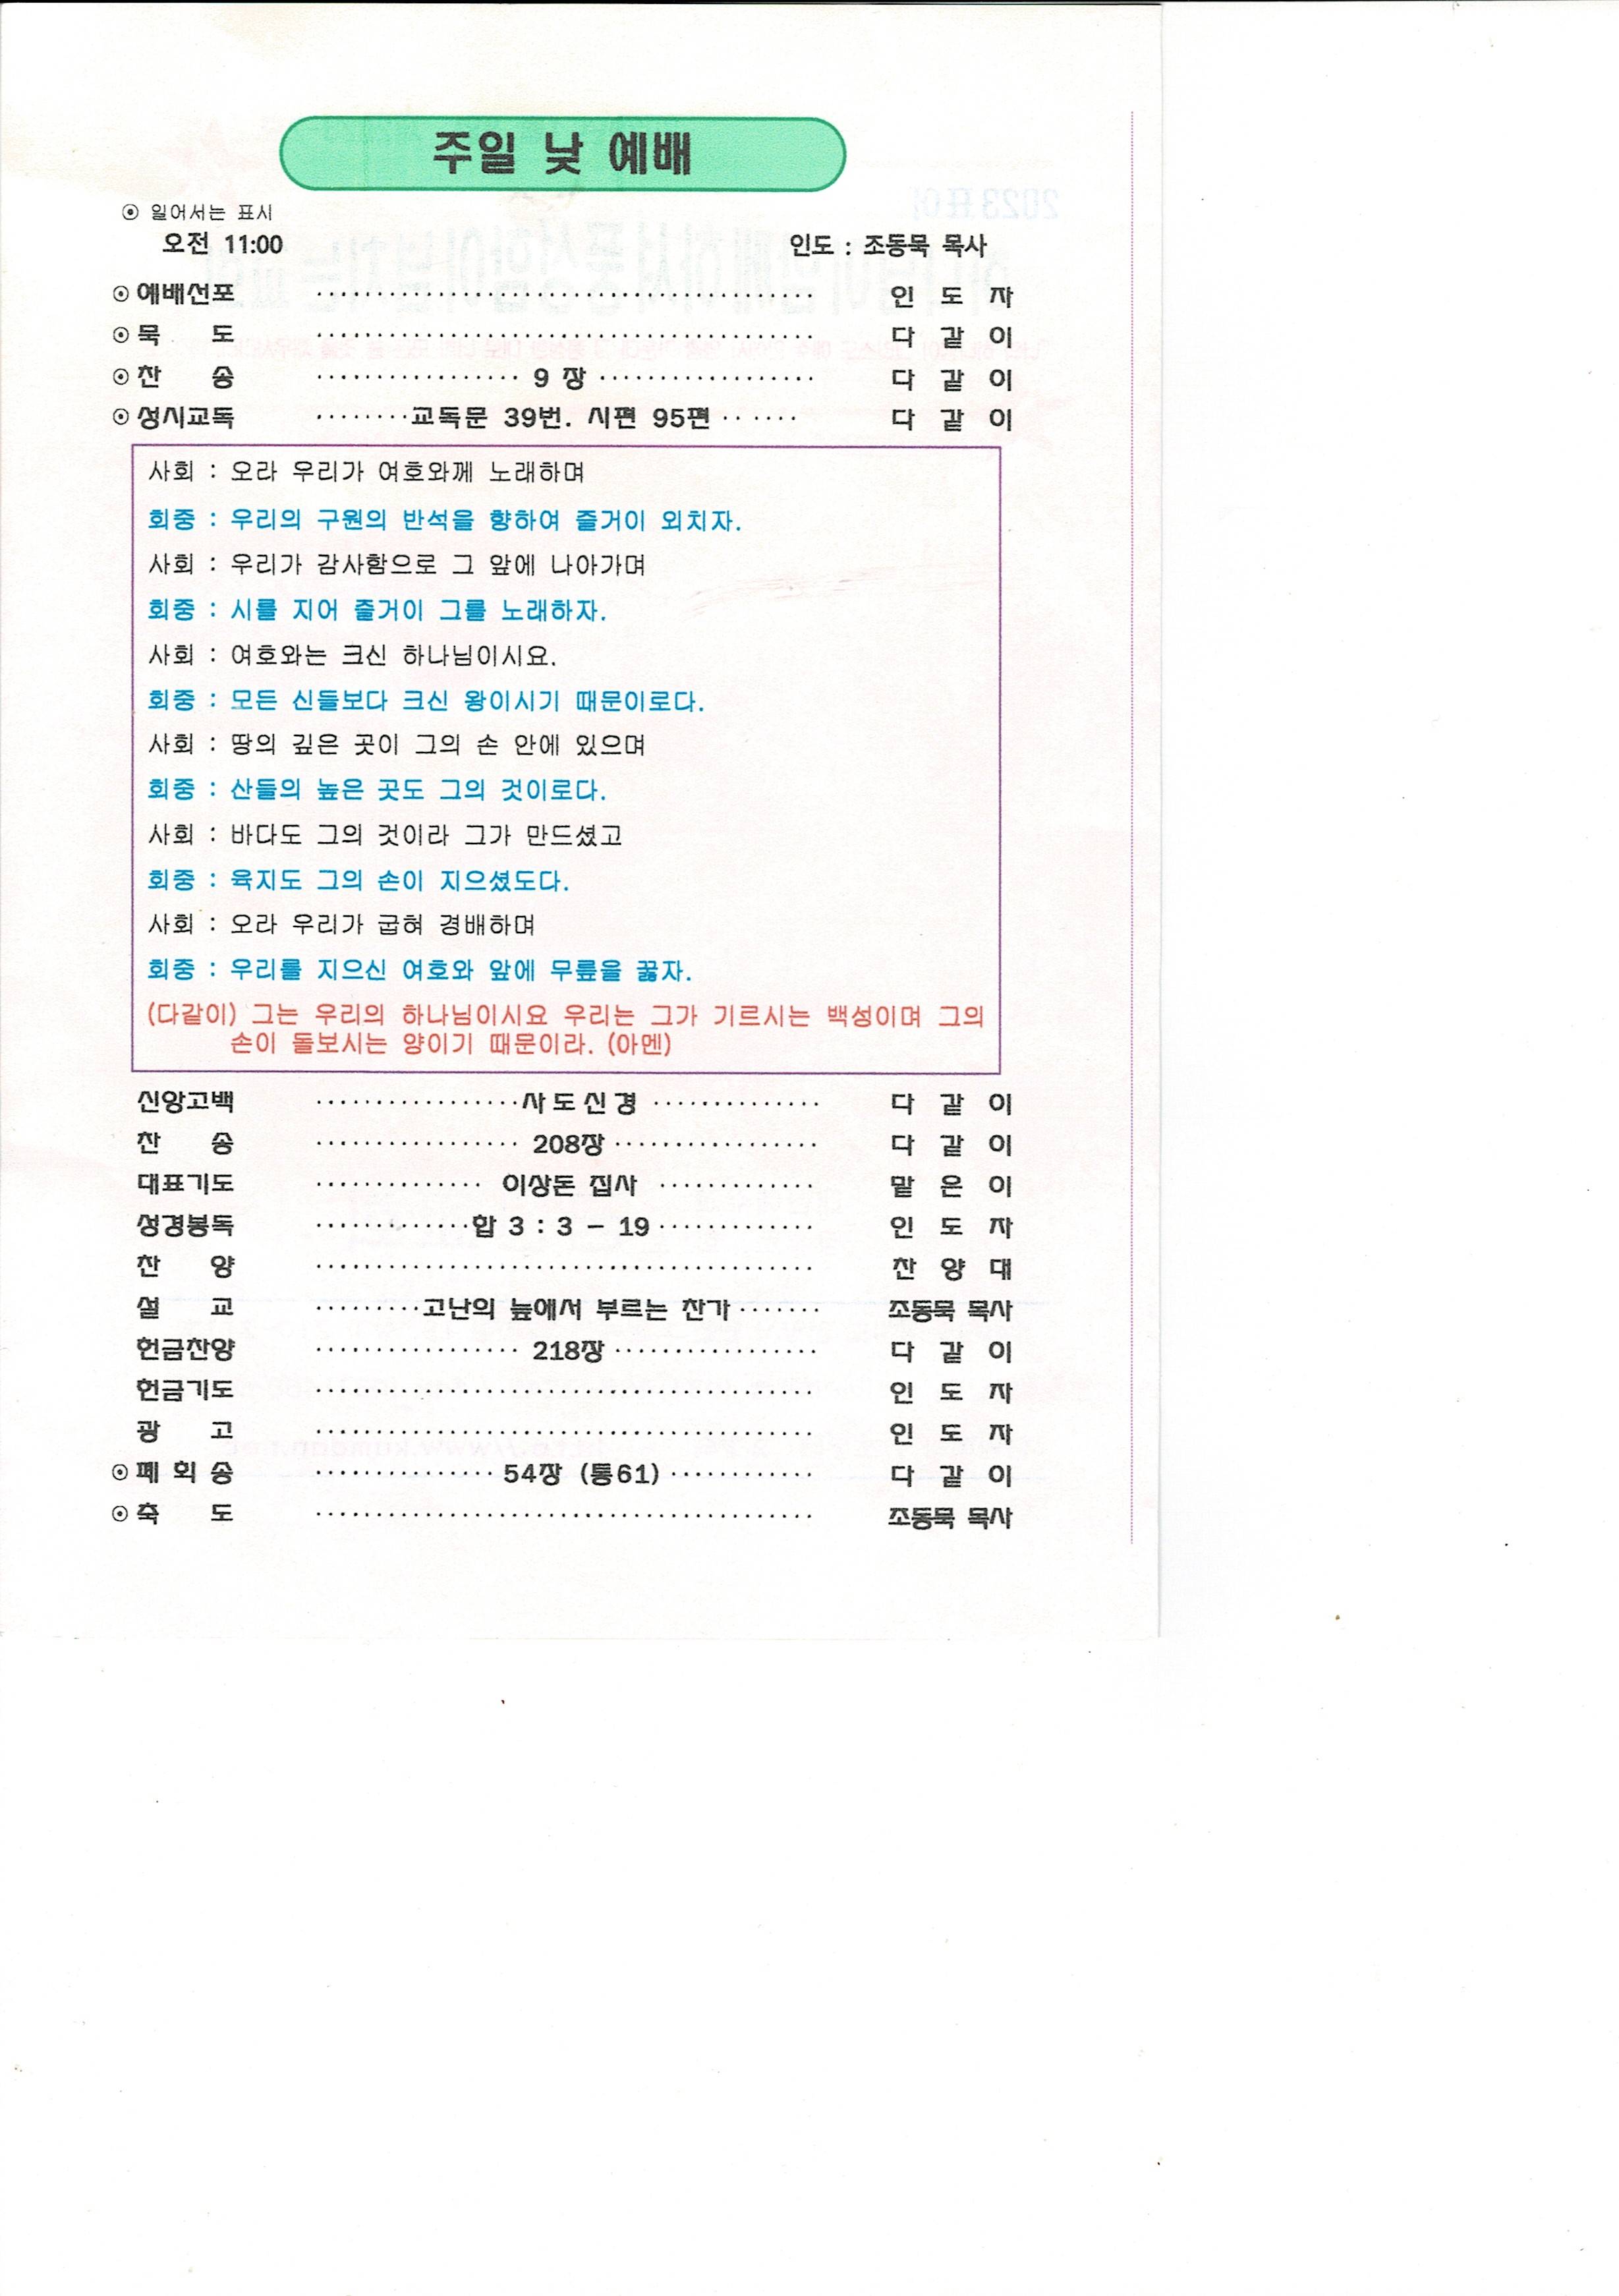 주일 낮 예배
⊙ 일어서는 표시
오전 11:00 인도 : 조동묵 목사
⊙ 예배선포 ········································· 인 도 자
⊙ 묵 도 ········································· 다 같 이
⊙ 찬 송 ················· 9 장 ·················· 다 같 이
⊙ 성시교독 ········교독문 39번. 시편 95편 ·· ···· 다 같 이
사회 : 오라 우리가 여호와께 노래하며
회중 : 우리의 구원의 반석을 향하여 즐거이 외치자.
사회 : 우리가 감사함으로 그 앞에 나아가며
회중 : 시를 지어 즐거이 그를 노래하자.
사회 : 여호와는 크신 하나님이시요.
회중 : 모든 신들보다 크신 왕이시기 때문이로다.
사회 : 땅의 깊은 곳이 그의 손 안에 있으며
회중 : 산들의 높은 곳도 그의 것이로다.
사회 : 바다도 그의 것이라 그가 만드셨고
회중 : 육지도 그의 손이 지으셨도다.
사회 : 오라 우리가 굽혀 경배하며
회중 : 우리를 지으신 여호와 앞에 무릎을 꿇자.
(다같이) 그는 우리의 하나님이시요 우리는 그가 기르시는 백성이며 그의
손이 돌보시는 양이기 때문이라. (아멘)
신앙고백 ·················사도신경 ·············· 다 같 이
찬 송 ················· 208장 ················· 다 같 이
대표기도 ·············· 이상돈 집사 ············· 맡 은 이
성경봉독 ·············합 3 : 3 - 19 ············· 인 도 자
찬 양 ········································· 찬 양 대
설 교 ·········고난의 늪에서 부르는 찬가 ······· 조동묵 목사
헌금찬양 ················· 218장 ················· 다 같 이
헌금기도 ········································· 인 도 자
광 고 ········································· 인 도 자
⊙ 폐 회 송 ··············· 54장 (통61) ············ 다 같 이
⊙ 축 도 ········································· 조동묵 목사